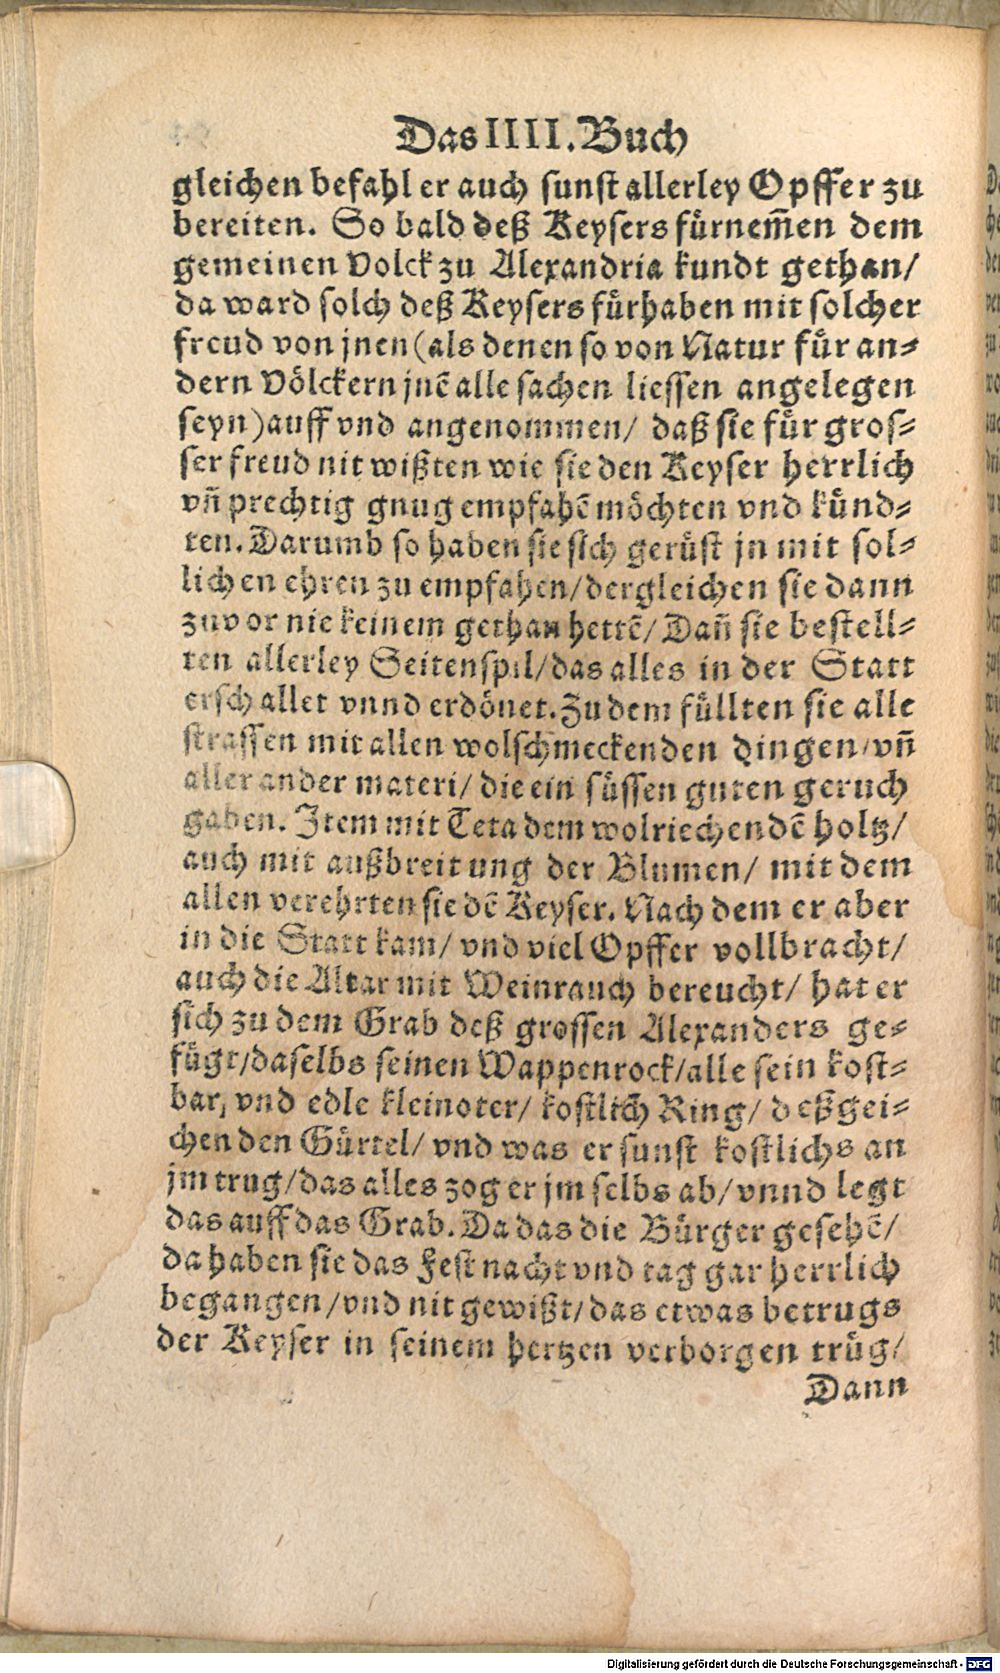 Das IIII. Buch
gleichen befahl er auch sunst allerley Opffer zu
bereiten. So bald deß Keysers fürnem̃en dem
gemeinen Volck zu Alexandria kundt gethan/
da ward solch deß Keysers fürhaben mit solcher
freud von jnen (als denen so von Natur für an⸗
dern Völckern jnẽ alle sachen liessen angelegen
seyn) auff vnd angenommen/ daß sie für gros⸗
ser freud nit wißten wie sie den Keyser herrlich
vñ prechtig gnug empfahẽ möchten vnd künd⸗
ten. Darumb so haben sie sich gerüst jn mit sol⸗
lichen ehren zu empfahen/ dergleichen sie dann
zuvor nie keinem gethan hettẽ/ Dañ sie bestell⸗
ten allerley Seitenspil/ das alles in der Statt
erschallet vnnd erdönet. Zu dem füllten sie alle
strassen mit allen wolschmeckenden dingen/ vñ
aller ander materi/ die ein süssen guten geruch
gaben. Item mit Teta dem wolriechendẽ holtz/
auch mit außbreitung der Blumen/ mit dem
allen verehrten sie dẽ Keyser. Nach dem er aber
in die Statt kam/ vnd viel Opffer vollbracht/
auch die Altar mit Weinrauch bereucht/ hat er
sich zu dem Grab deß grossen Alexanders ge⸗
fügt/ daselbs seinen Wappenrock/ alle sein kost⸗
bar, vnd edle kleinoter/ kostlich Ring/ deßgei⸗
chen den Gürtel/ vnd was er sunst kostlichs an
jm trug/ das alles zog er jm selbs ab/ vnnd legt
das auff das Grab. Da das die Bürger gesehẽ/
da haben sie das Fest nacht vnd tag gar herrlich
begangen/ vnd nit gewißt/ das etwas betrugs
der Keyser in seinem hertzen verborgen trüg/
Dann
Digitalisierung gefördert durch die Deutsche Forschungsgemeinschaft - DFG